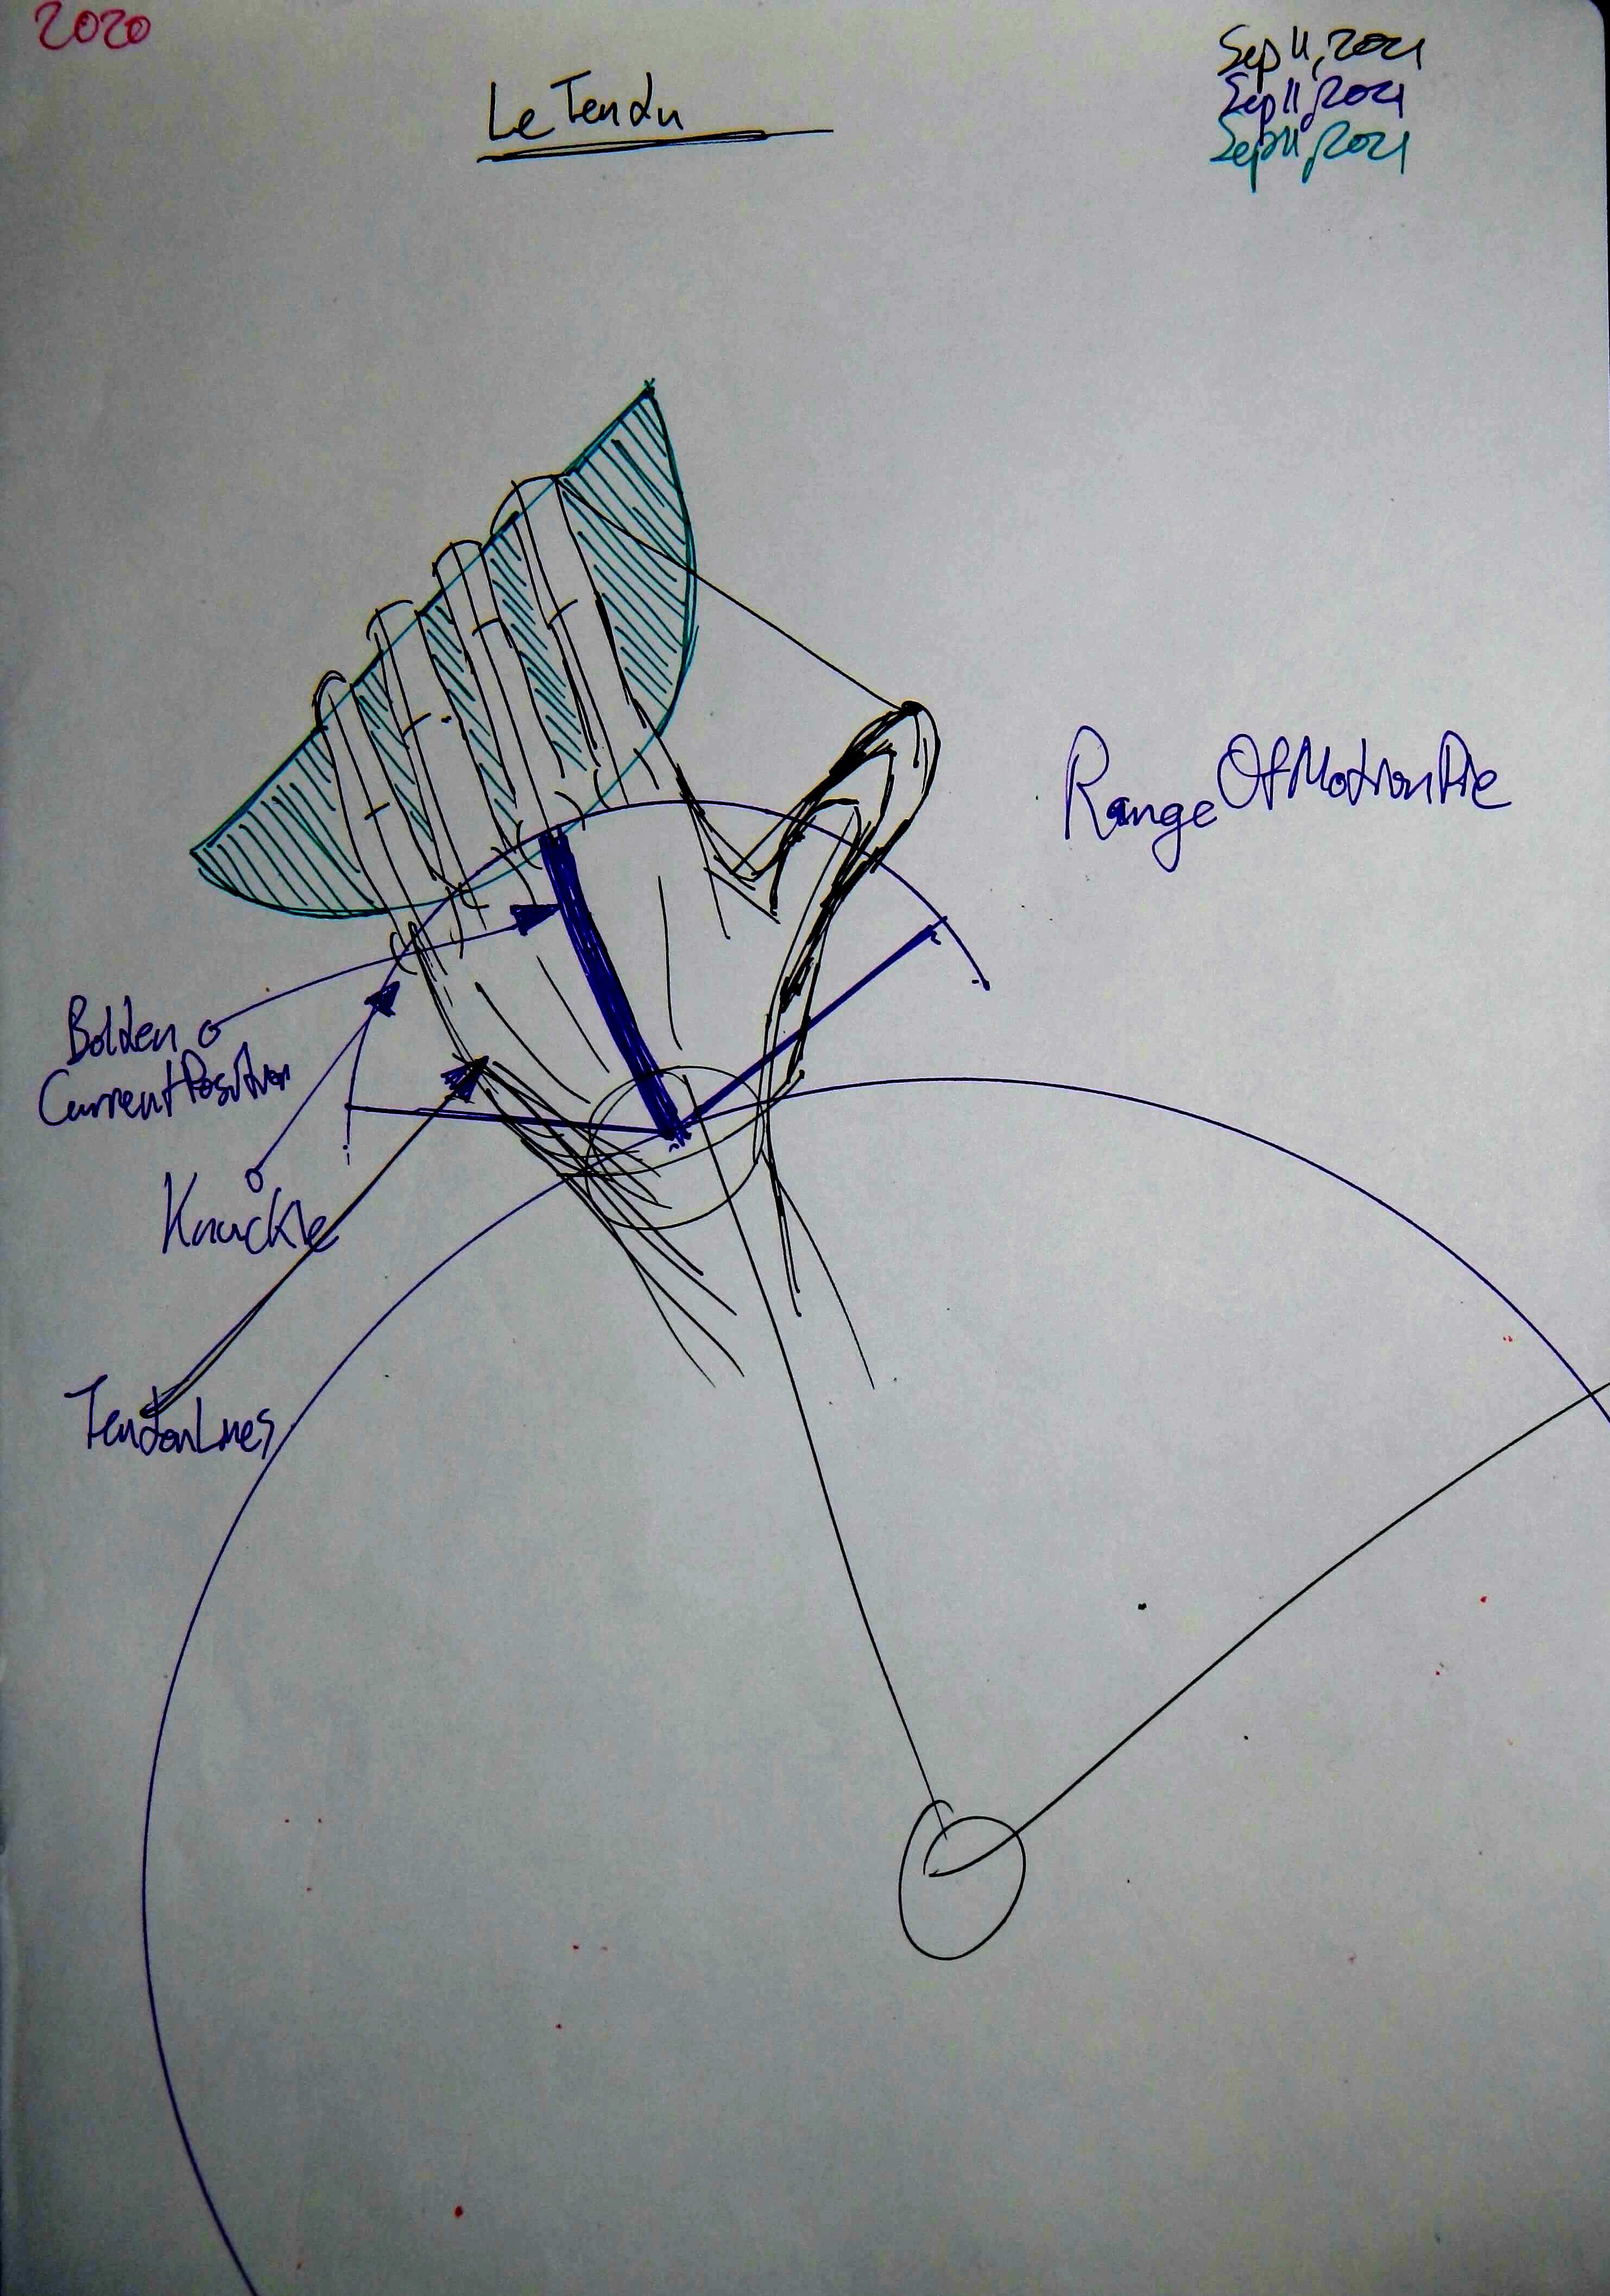 2020
Sep 11, 2021
Sep 11, 2021
Sep 11, 2021
Le Tendu
Range Of Motion Pie
Bolden
Current Position
Knuckle
Tendon Lines